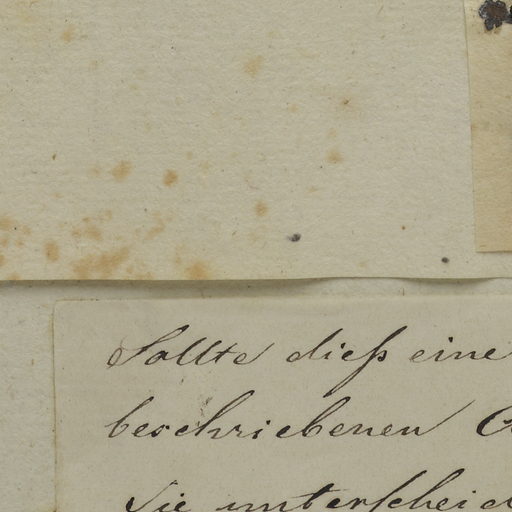 Sollte dieß eine
beschriebenen
Sie unterscheid